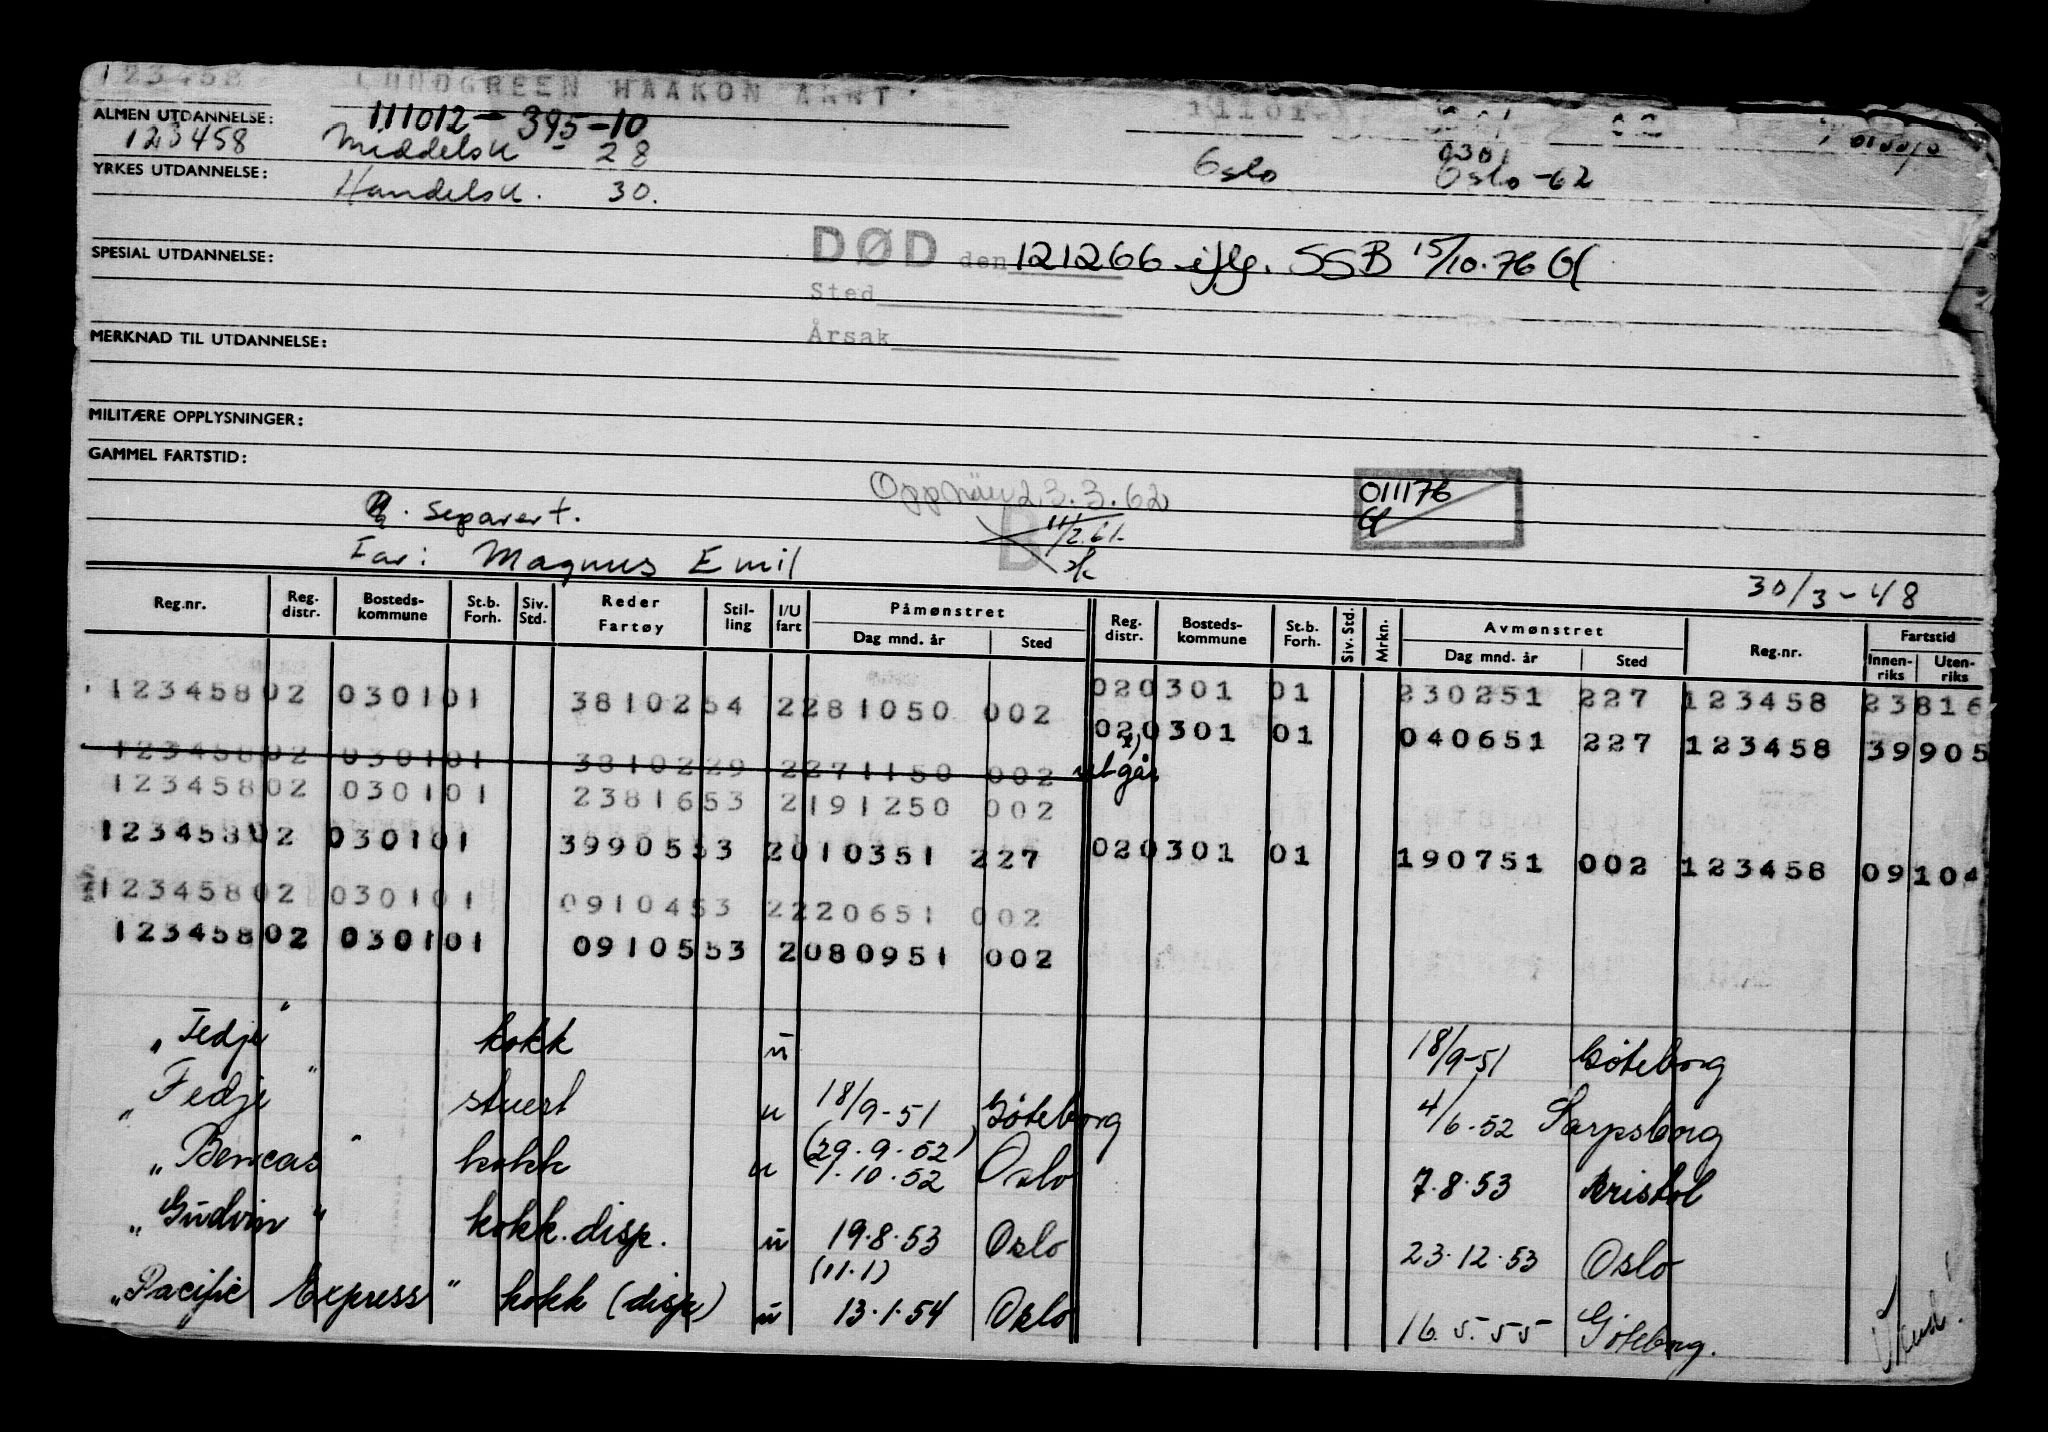 123458 LUNDGREEN HAAKON
ALMEN UTDANNELSE: 111012-395-10
123458 Middelsk - 28 Oslo 0301 Oslo -62
YRKES UTDANNELSE: Handelsk. 30.
SPESIAL UTDANNELSE: DØD den 121266 iflg. SSB 15/10.76
Sted
MERKNAD TIL UTDANNELSE: Årsak
MILITÆRE OPPLYSNINGER:
GAMMEL FARTSTID:
Oppnåv 23.3.62 011176
separert. 11/2.61.
Far: Magnus Emil
30/3-48
Reg.nr. Reg. distr. Bosteds-kommune St.b. Forh. Siv. Std. Reder Fartøy Stil-ling I/U fart Påmønstret Reg. distr. Bosteds-kommune St.b. Forh. Siv. Std. Mrkn. Avmønstret Reg.nr. Fartstid
Dag mnd. år Sted Dag mnd. år Sted Innen-riks Uten-riks
12345802 030101 3810254 2281050 002 020301 01 230251 227 123458 23816
020301 01 040651 227 123458 39905
12345802 030101 3810229 2271150 002 utgår
12345802 030101 2381653 2191250 002
12345802 030101 3990553 2010351 227 020301 01 190751 002 123458 09104
12345802 030101 0910453 2220651 002
12345802 030101 0910553 2080951 002
"Fedje" kokk u 18/9-51 Göteborg
"Fedje" stuert u 18/9-51 Göteborg 4/6-52 Sarpsborg
(29.9.52)
"Benicas" kokk u 1.10.52 Oslo 7.8.53 Bristol
"Gudvin" kokk.disp. u 19.8.53 Oslo 23.12.53 Oslo
(11.1)
"Pacific Express" kokk (disp) u 13.1.54 Oslo 16.5.55 Göteborg.